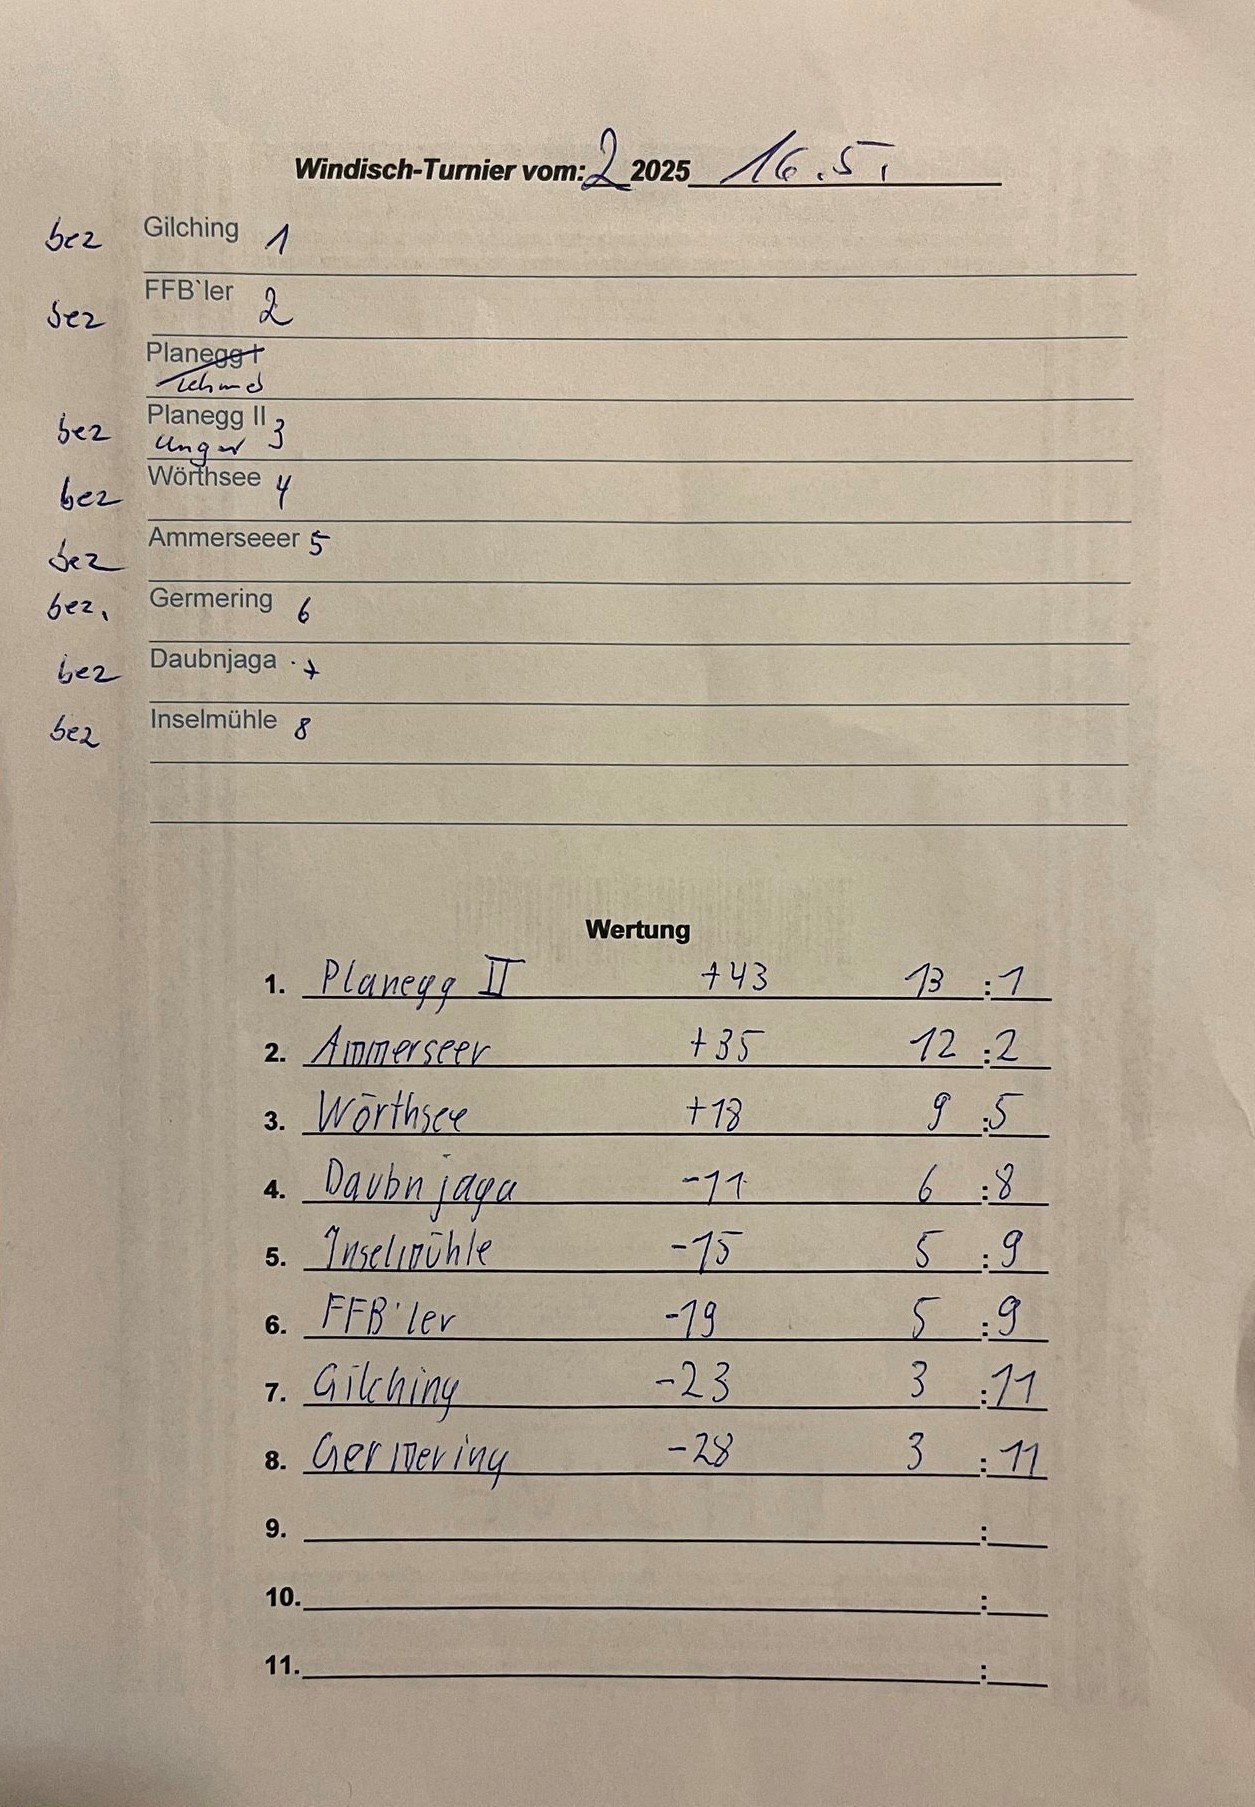 Windisch-Turnier vom: 2 2025 16.5.
bez Gilching 1
bez FFB`ler 2
Planegg I
Schmid
bez Planegg II 3
Unger
bez Wörthsee 4
bez Ammerseeer 5
bez. Germering 6
bez Daubnjaga 7
bez Inselmühle 8
Wertung
1. Planegg II +43 13 : 1
2. Ammerseer +35 12 : 2
3. Wörthsee +18 9 : 5
4. Daubnjaga -11 6 : 8
5. Inselmühle -15 5 : 9
6. FFB'ler -19 5 : 9
7. Gilching -23 3 : 11
8. Germering -28 3 : 11
9. :
10. :
11. :